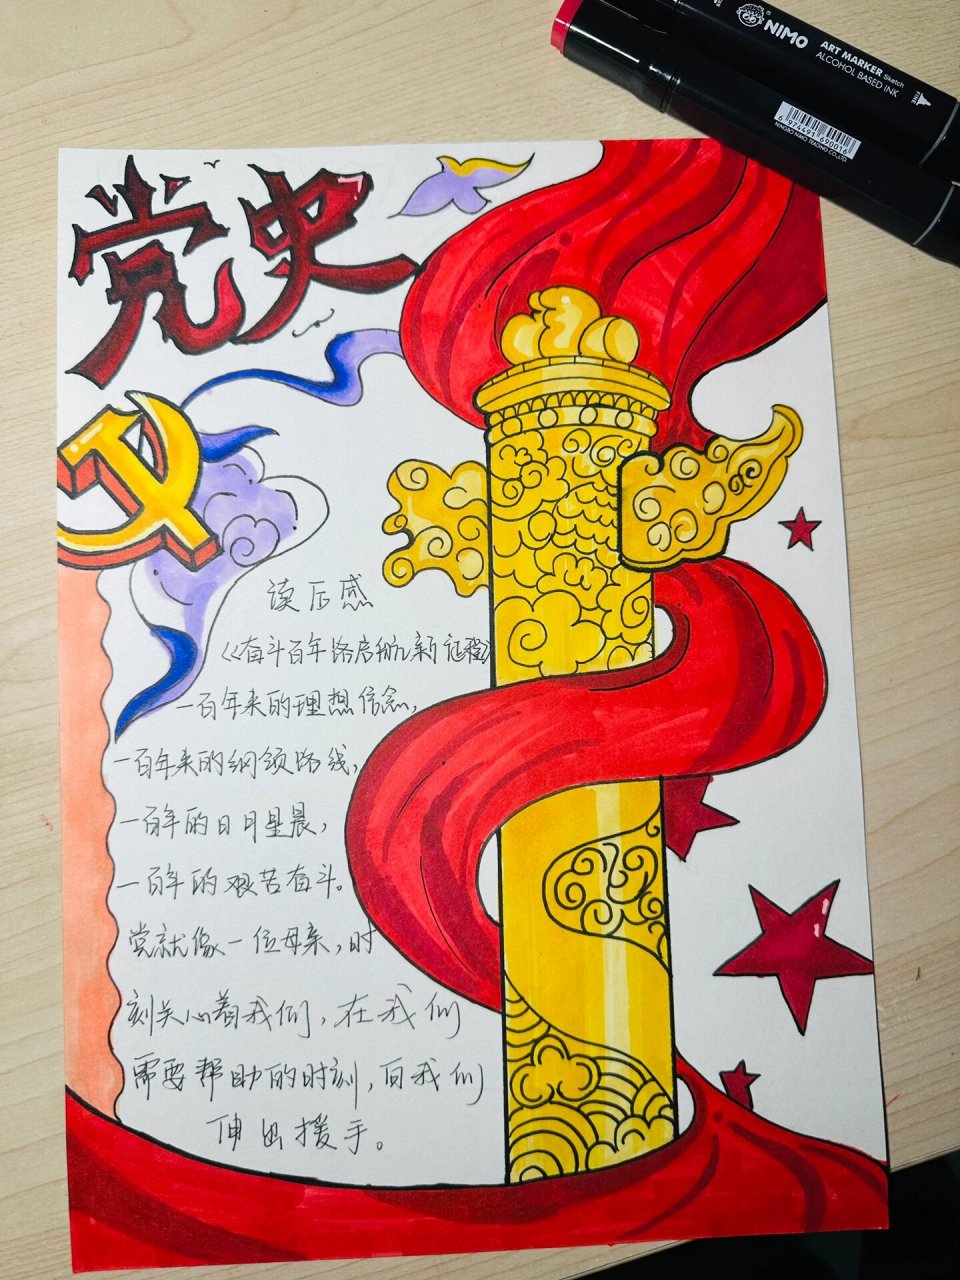 NIMO
ART MARKER Sketch
ALCOHOL BASED INK
FINE
6 974491 690016
NINGBO NIMO TRADING CO.,LTD.
党史
读后感
《奋斗百年路启航新征程》
一百年来的理想信念,
一百年来的纲领路线,
一百年的日月星晨,
一百年的艰苦奋斗。
党就像一位母亲,时
刻关心着我们,在我们
需要帮助的时刻,向我们
伸出援手。